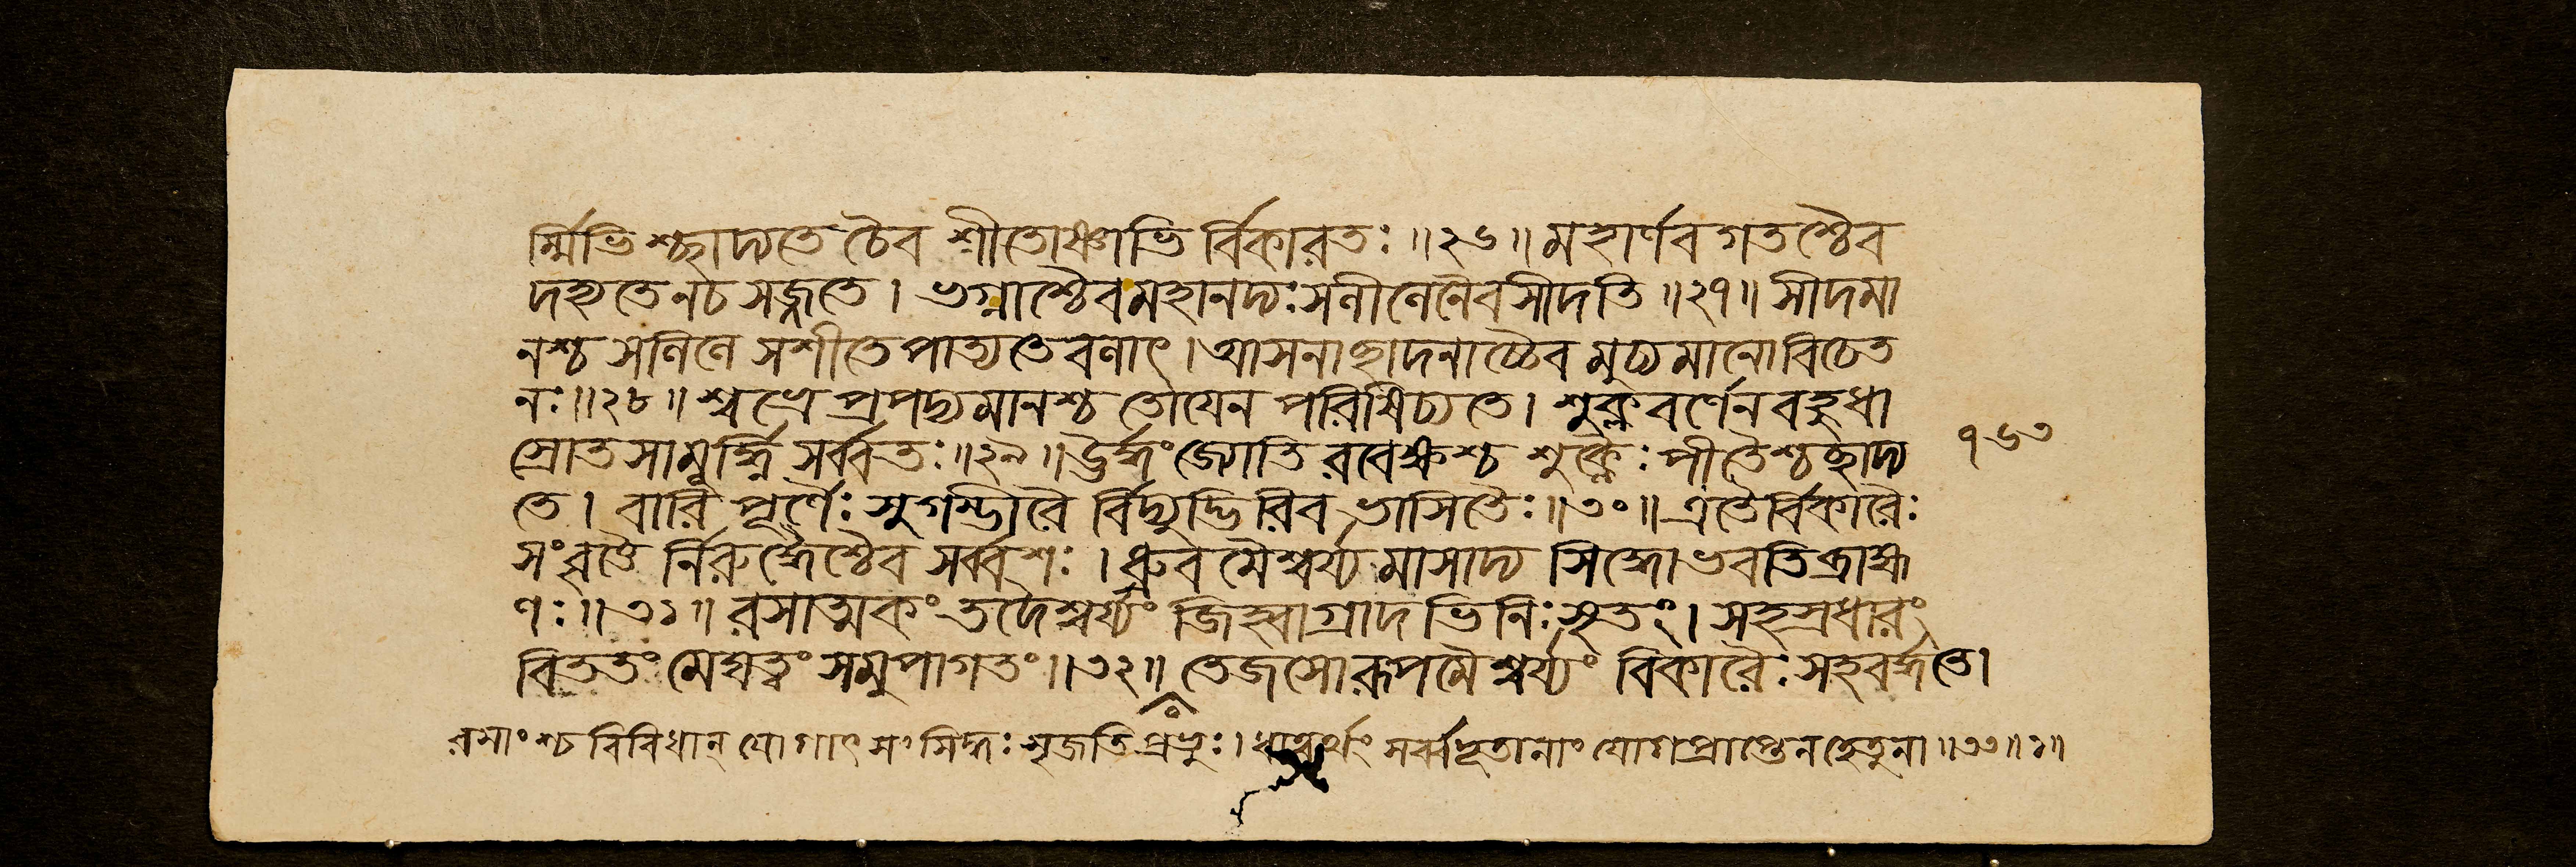 র্ম্মিভিশ্ছাদ্যতে চৈব শীতোষ্ণাভি র্বিকারতঃ ॥২৬॥ মহার্ণব গতশ্চৈব
দহ্যতে নচ সজ্জতে। ভগ্নাশ্চৈব মহানদ্যঃ সলীলেনৈব সীদতি ॥২৭॥ সীদমা
নশ্চ সলিলে সশীতে পাত্যতে বলাৎ। আসনাছাদনাচ্চৈব মুচ্যমানো বিচেত
নঃ॥২৮॥ শ্বভ্রে প্রপদ্যমানশ্চ তোয়েন পরিষিচ্যতে। শুক্লবর্ণেন বহুধা
স্রোতসা মূর্দ্ধ্নি সর্ব্বতঃ॥২৯॥ ঊর্দ্ধং জ্যোতি রবেক্ষশ্চ শুক্লৈঃ পীতৈশ্চ ছাদ্য
তে। বারি পূর্ণৈঃ সুগম্ভীরৈ র্বিদ্যুদ্ভিরিব ভাসিতৈঃ॥৩০॥ এতৈর্বিকারৈঃ
সংবৃতৈ র্নিরুদ্ধৈশ্চৈব সর্ব্বশঃ। ধ্রুব মৈশ্বর্য্য মাসাদ্য সিদ্ধো ভবতি ব্রাহ্ম
ণঃ॥৩১॥ রসাত্মকং তদৈশ্বর্য্যং জিহ্বাগ্রাদভিনিঃসৃতং। সহস্রধারং
বিততং মেঘত্বং সমুপাগতং॥৩২॥ তেজসোরূপমৈশ্বর্য্যং বিকারৈঃ সহবর্দ্ধতে।
রসাংশ্চ বিবিধান্ যোগাৎ সংসিদ্ধঃ সৃজতি প্রভুঃ। ধাত্বর্থং সর্ব্বভূতানাং যোগপ্রাপ্তেন হেতুনা॥৩৩॥১॥
৭৬৩